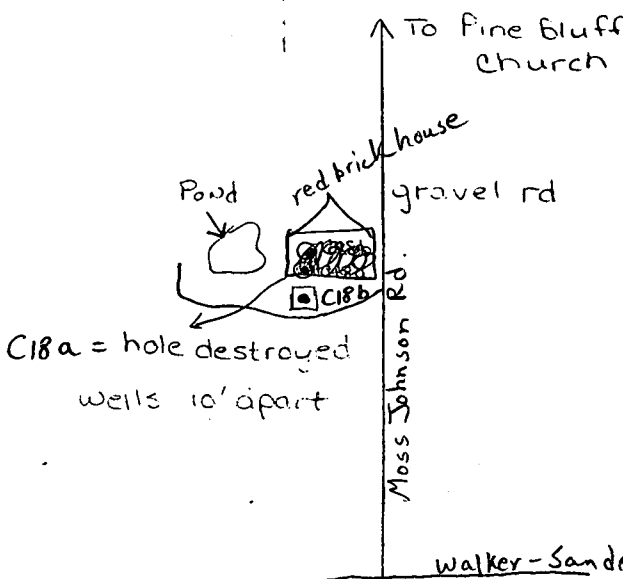 To Pine Bluff
Church
red brick house
Pond
gravel rd
C18b
C18a = hole destroyed
wells 10' apart
Moss Johnson Rd.
Walker-Sande